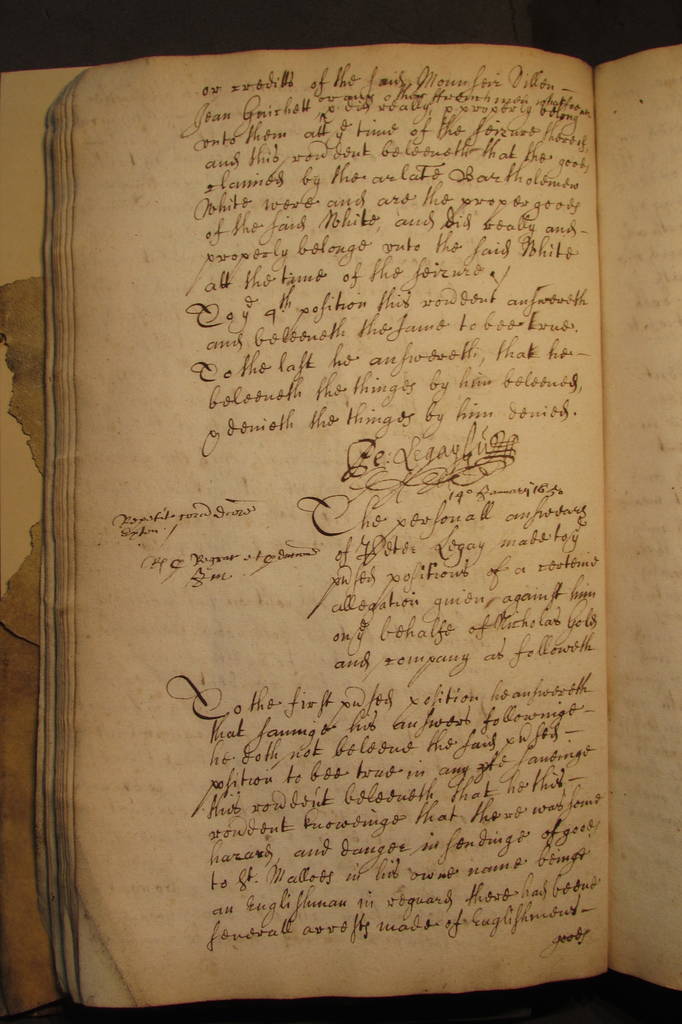 or creditts of the said Mounseir Villen -
Jean Guichett or any other ffrenchmen whatsoever
p did really & properly belong
unto them att ye time of the seizure thereof,
and this rendent beleeveth that the goods
claimed by the arlate Bartholomew
White were and are the proper goods
of the said White, and did really and -
properly belonge unto the said White
att the time of the seizure ./
To ye 4th position this rendent answereth
and beleeveth the same to bee true.
To the last he answereth, that he -
beleeveth the thinges by him beleeved,
& denieth the thinges by him denied.
Pe: Legay
14o January 1650
Repetit coram
The personall answeares
of Peter Legay made to ye
pnsed positions of a certeine
allegation given against him
on ye behalfe of Nicholas Gold
and company as followeth
To the first pnsed position he answereth
that saveinge his answers followinge -
he doth not beleeve the said pnsed -
position to bee true in any pte saveinge
this rendent beleeveth that he this -
rendent knoweinge that there was some
hazard, and danger in sendinge of goods
to St. Malloes in his owne name beinge
an Englishman in reguard there had beene
severall arrests made of Englishmens -
goods